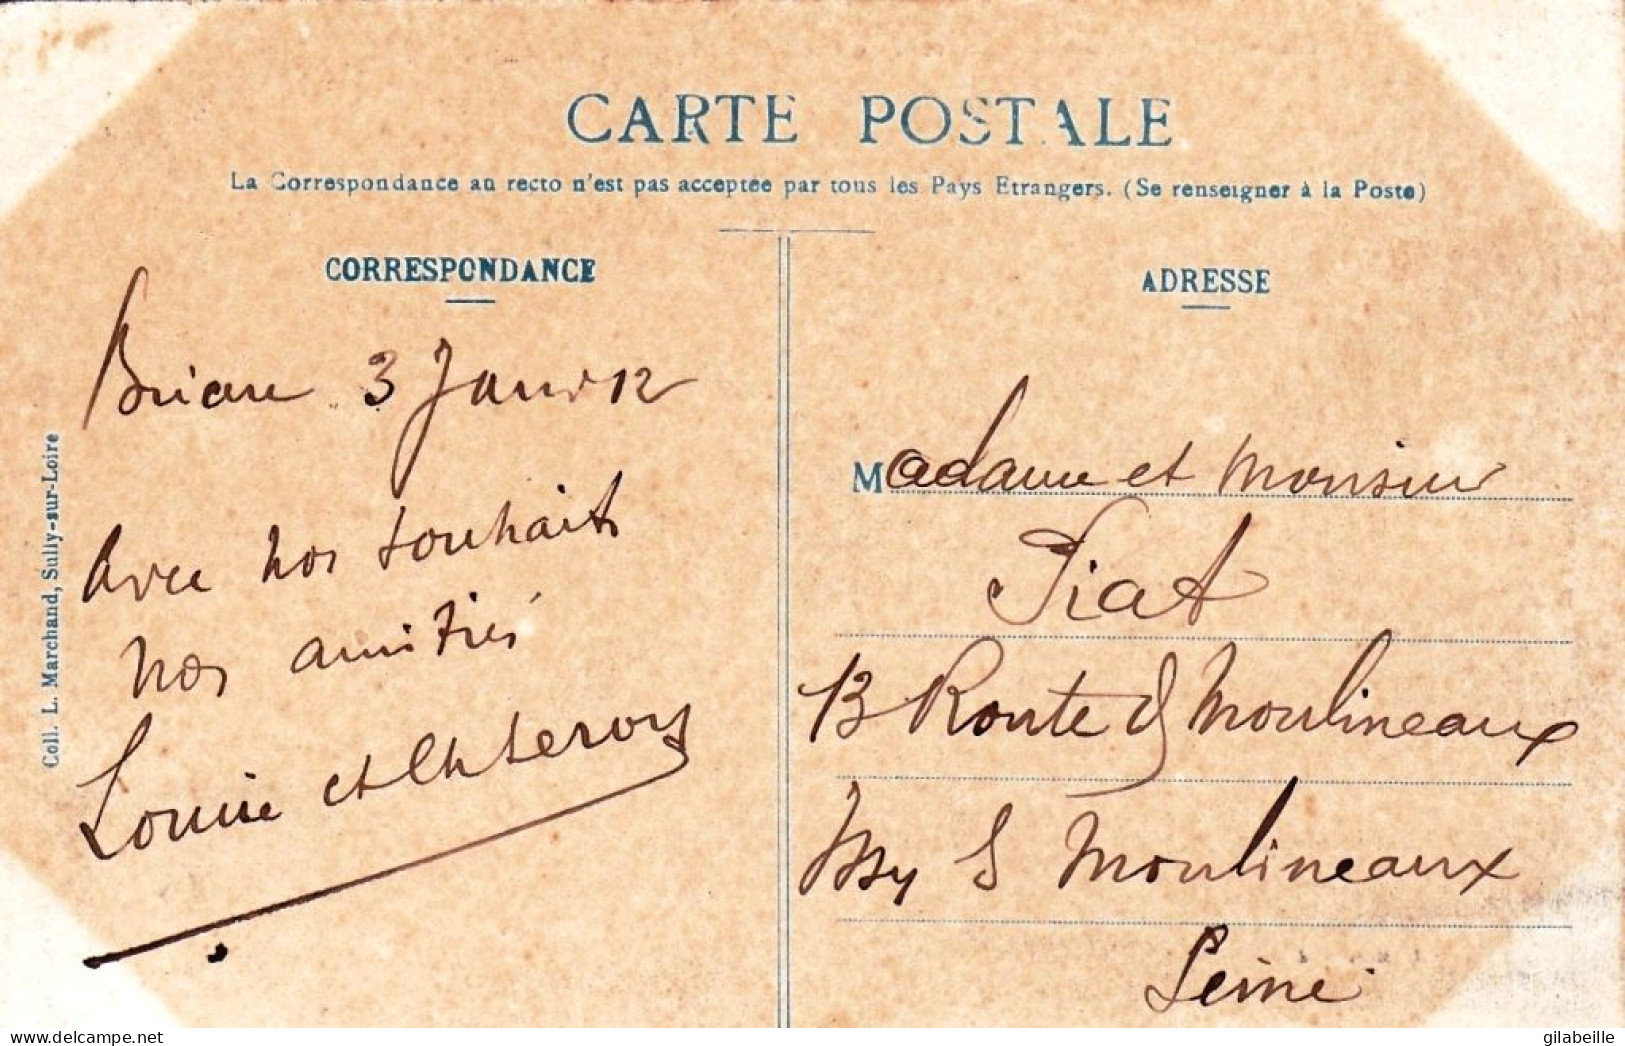 CARTE POSTALE
La Correspondance au recto n'est pas acceptée par tous les Pays Etrangers. (Se renseigner à la Poste)
CORRESPONDANCE
Briare 3 Janvr 12
Avec nos souhaits
nos amitiés
Louise et
Coll. L. Marchand, Sully-sur-Loire
ADRESSE
Madame et Monsieur
Piat
13 Route d Moulineaux
Issy L Moulineaux
Seine
delcampe.net
gilabeille